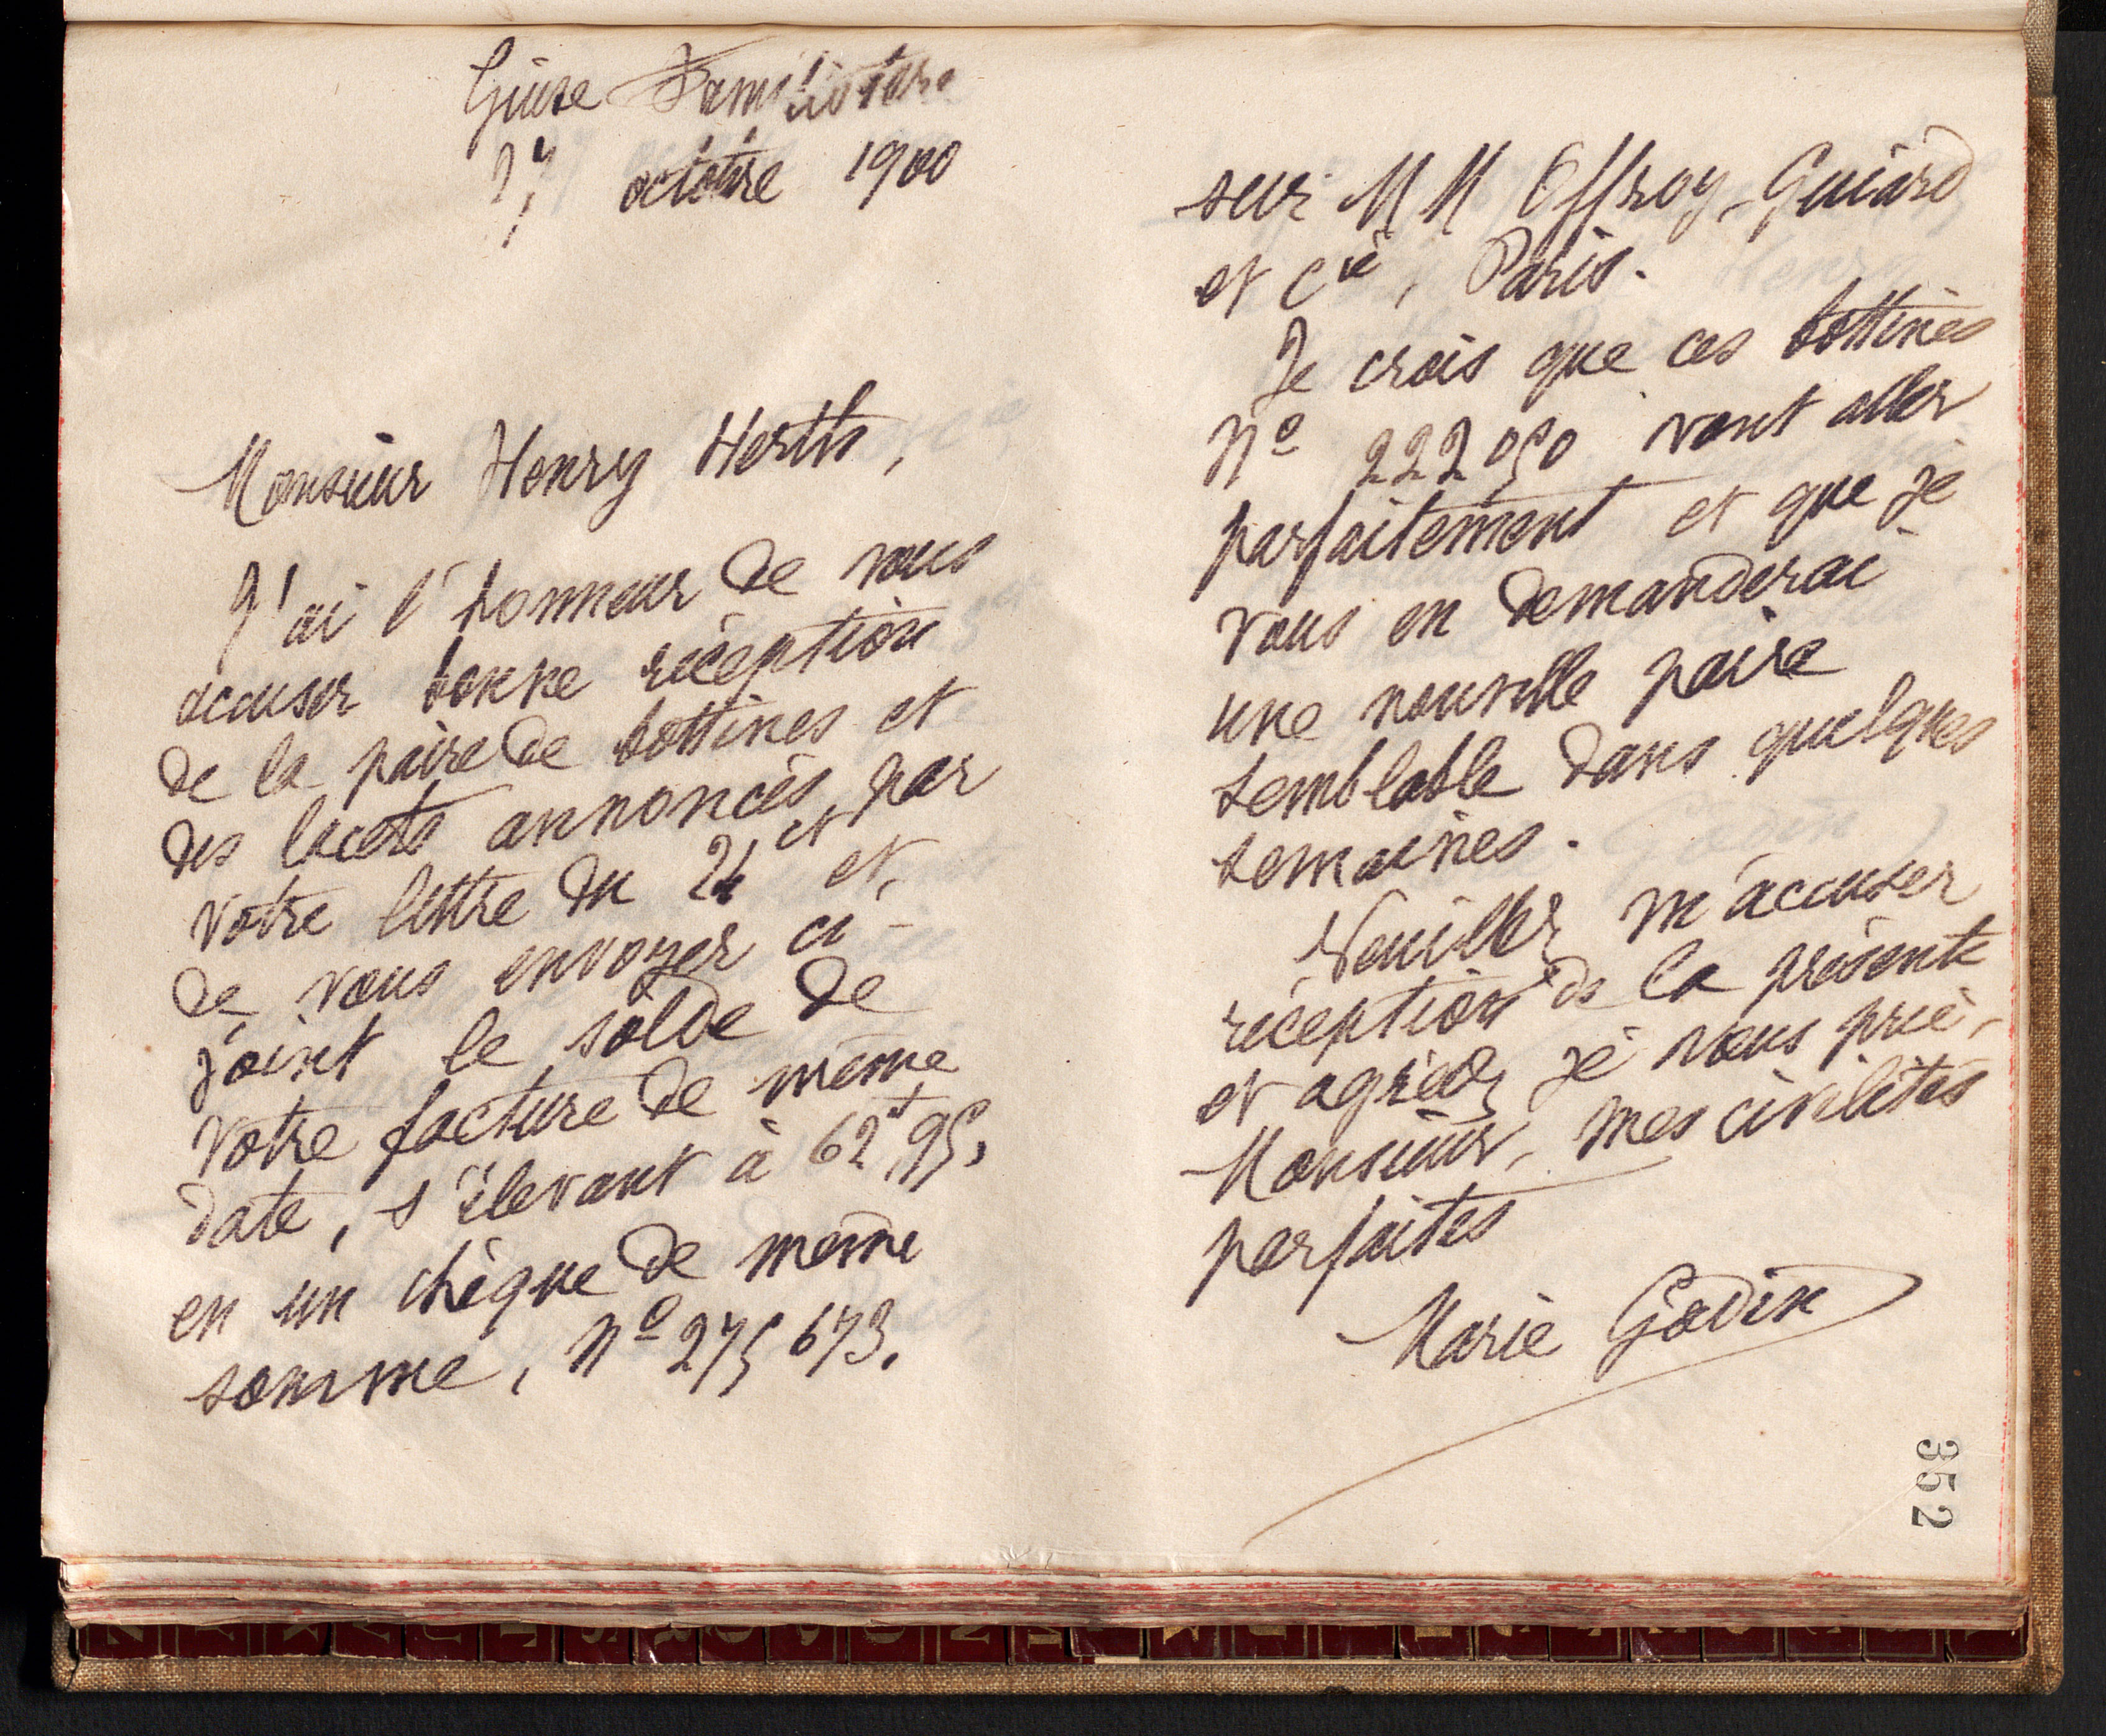 Guise Familistère
27 octobre 1900
Monsieur Henry Herth,
J'ai l'honneur de vous
accuser bonne réception
de la paire de bottines et
des lacets annoncés par
votre lettre du 24 ct et,
de vous envoyer ci-
joint le solde de
votre facture de même
date, s'élevant à 62f,95,
en un chèque de même
somme, No 275 673.
sur MM Offroy-Guiard
et Cie, Paris.
Je crois que ces bottines
No 222 050 vont aller
parfaitement et que je
vous en demanderai
une nouvelle paire
semblable dans quelques
semaines.
Veuillez m'accuser
réception de la présente
et agréez, je vous prie,
Monsieur, mes civilités
parfaites
Marie Godin
352